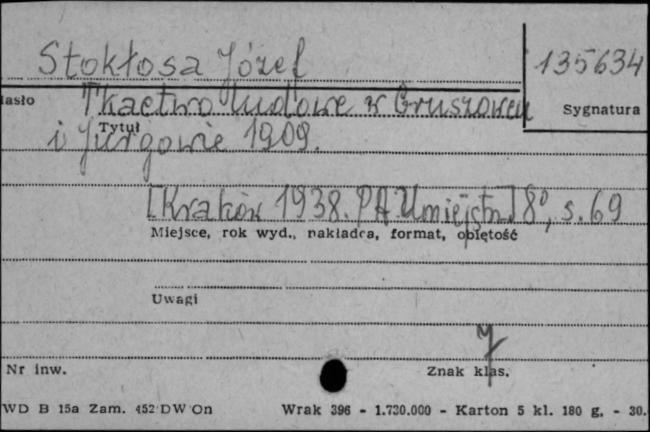 Stokłosa Józef
135634
Hasło
Tkactwo ludowe w Gruszowcu
Sygnatura
Tytuł
i Jurgowie 1909.
[Kraków 1938. PA Umiejętn.] 8°, s. 69
Miejsce, rok wyd., nakładca, format, objętość
Uwagi
Nr inw.
Znak klas.
WD B 15a Zam. 452 DW On
Wrak 396 - 1.730.000 - Karton 5 kl. 180 g. - 30.